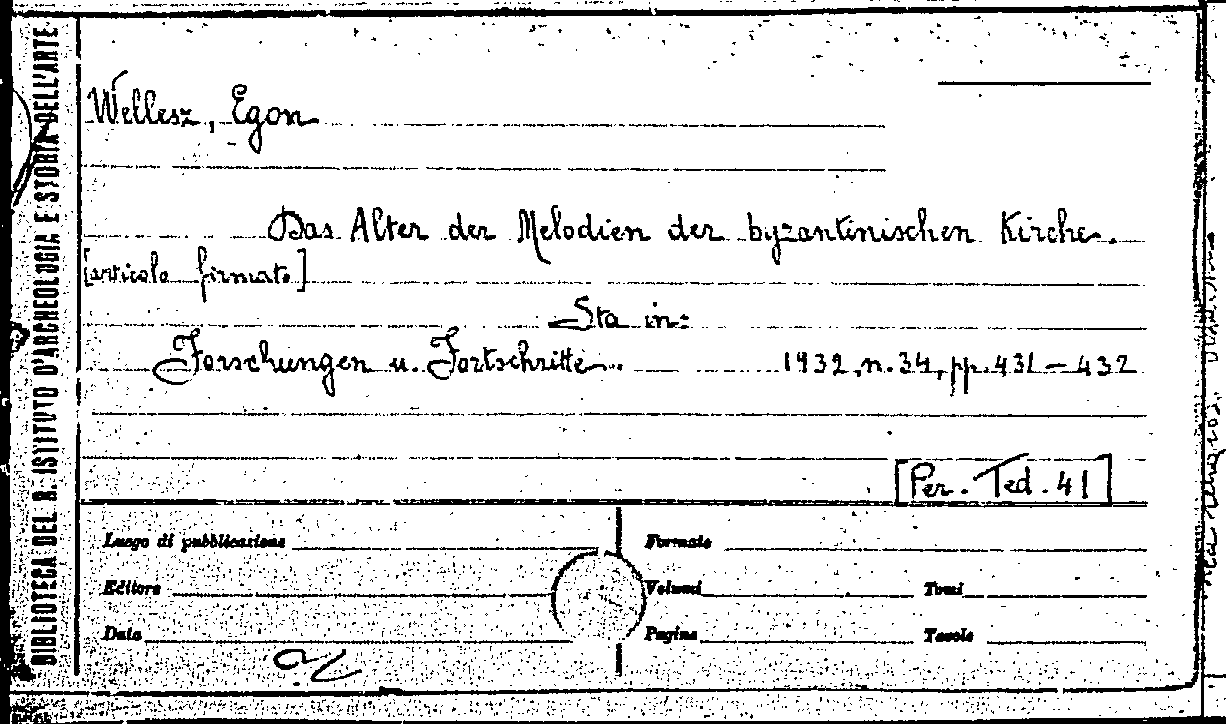 BIBLIOTECA DEL R. ISTITUTO D'ARCHEOLOGIA E STORIA DELL'ARTE
Wellesz, Egon
Das Alter der Melodien der byzantinischen Kirche.
[articolo firmato]
Sta in:
Forschungen u. Fortschritte. 1932, n. 34, pp. 431-432
[Per. Ted. 41]
Luogo di pubblicazione Formato
Editore Volumi Tomi
Data Pagine Tavole